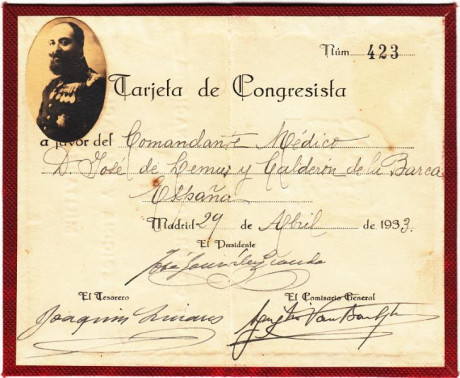 Núm 423
Tarjeta de Congresista
a favor del Comandante Médico
D. José de Lemus y Calderón de la Barca
España
Madrid 29 de Abril de 1933.
El Presidente
El Tesorero
El Comisario General
Joaquin Linares